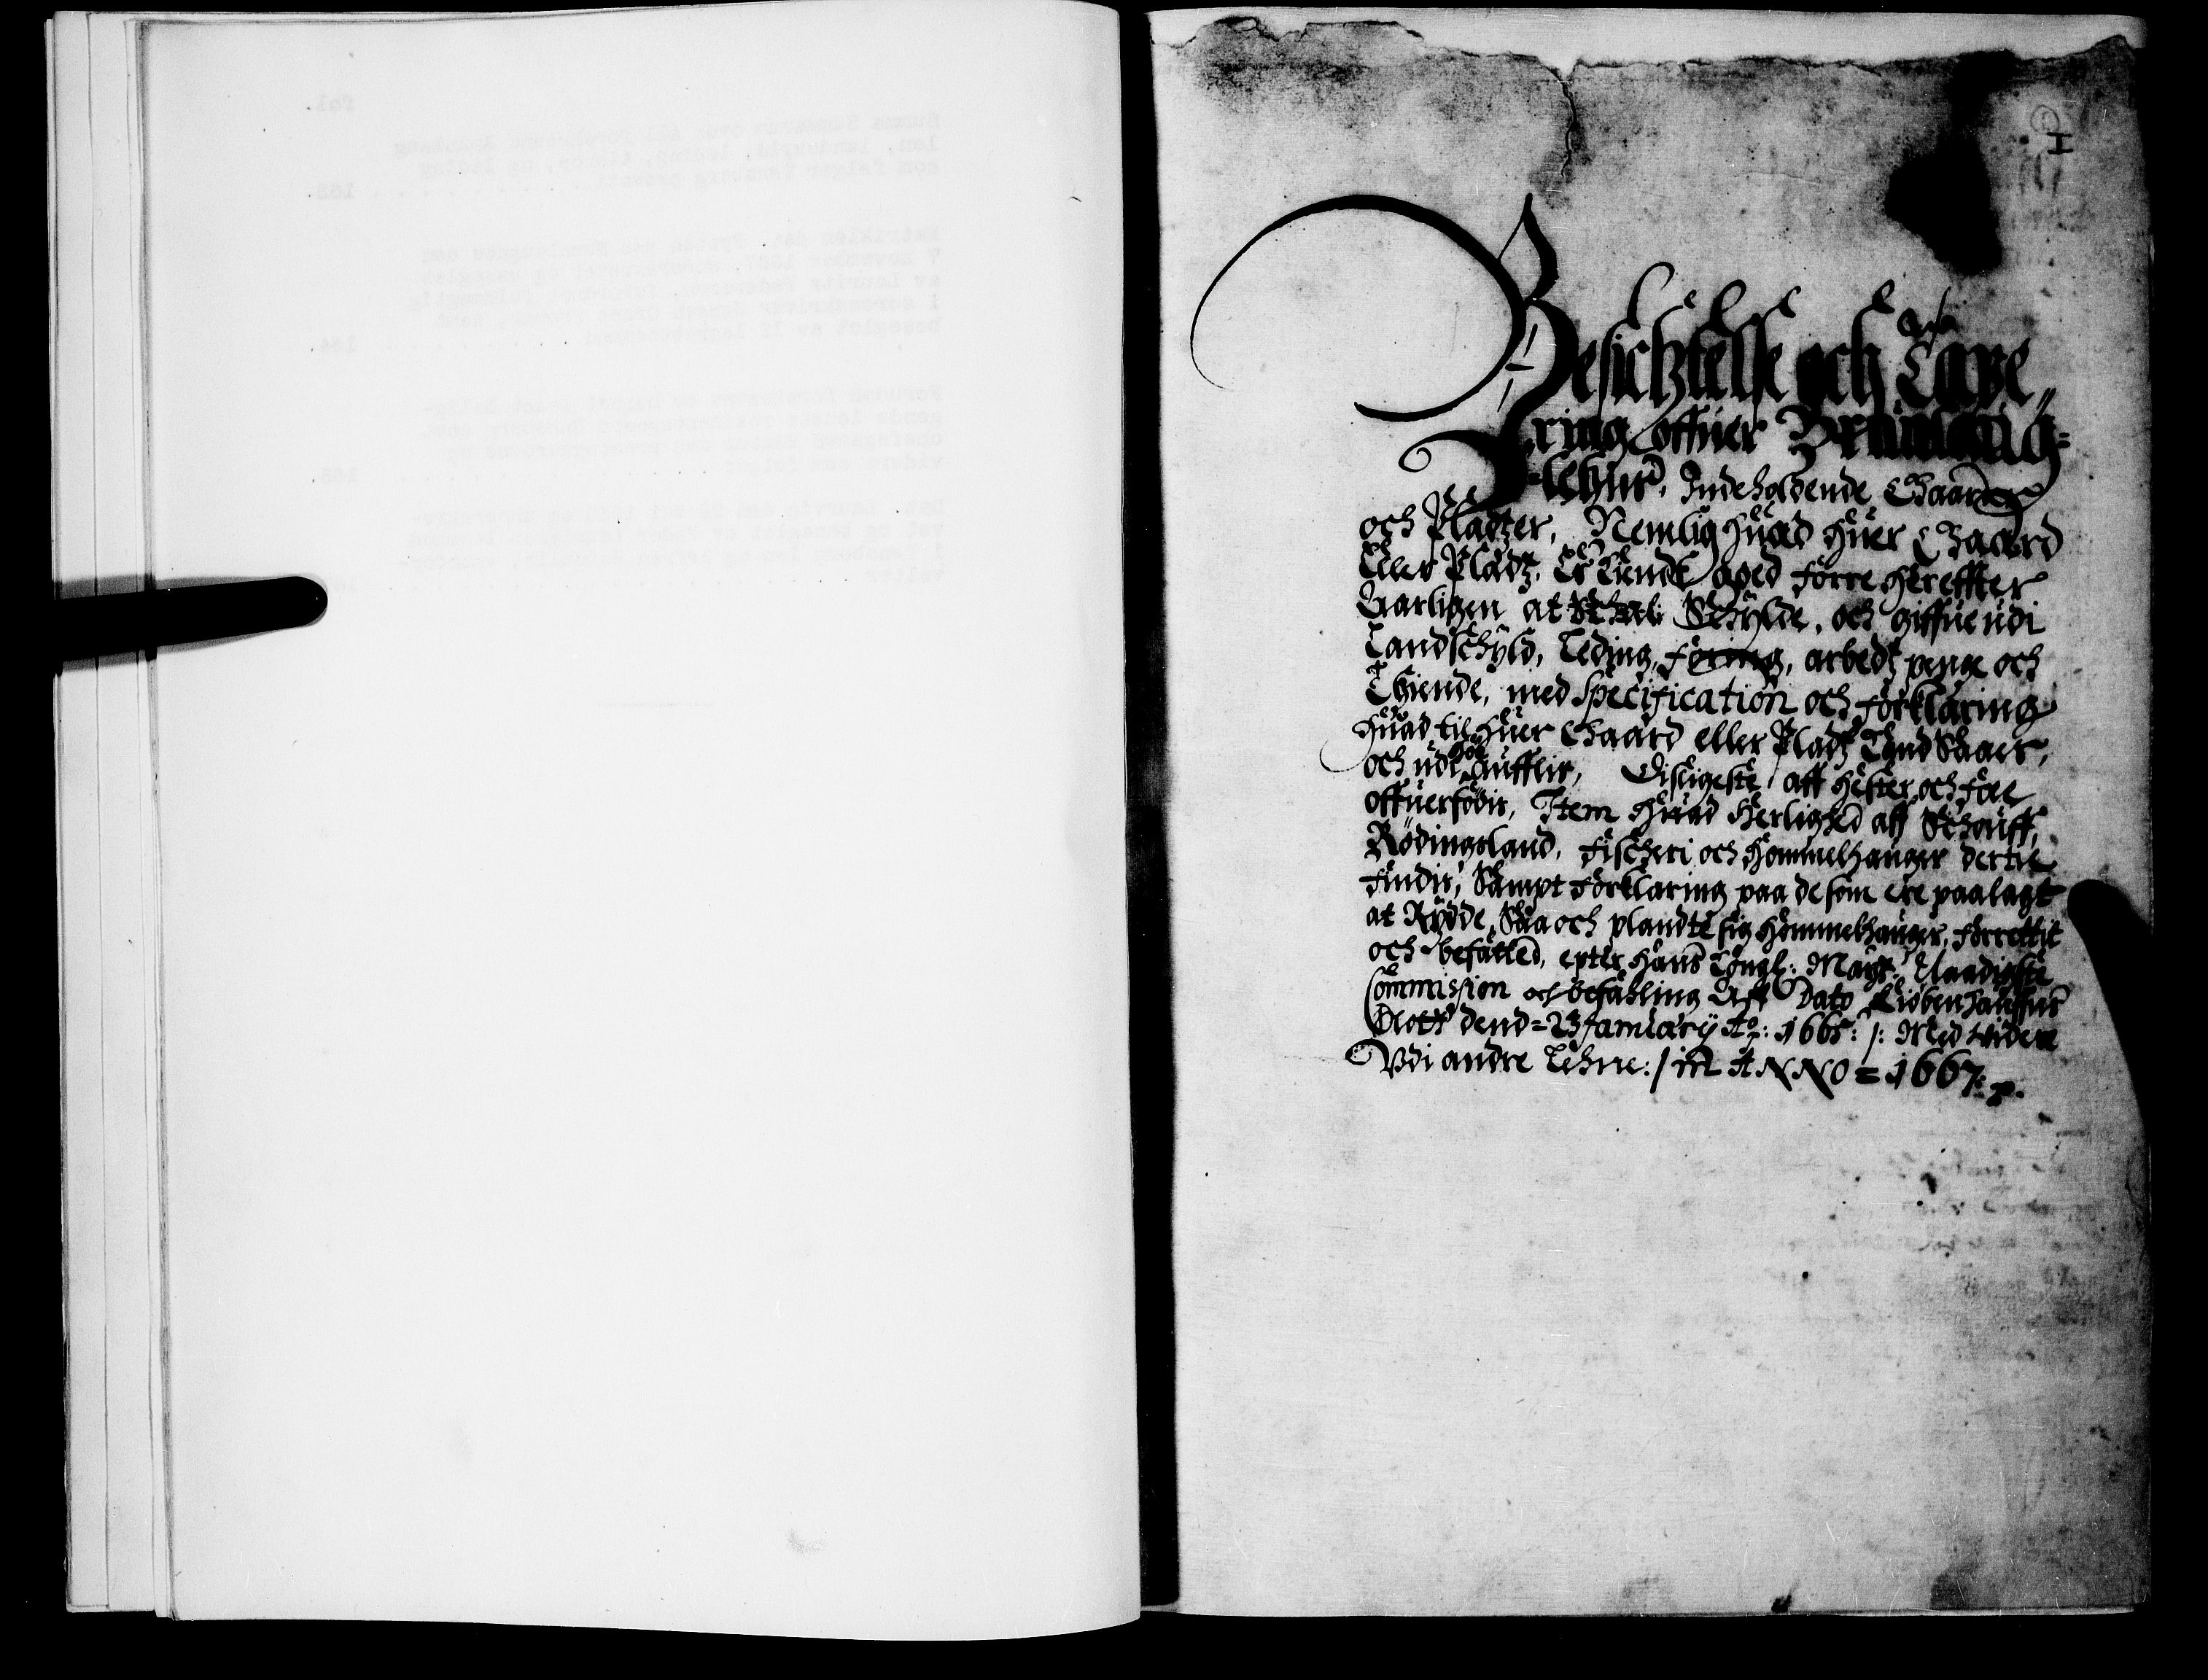 I
Besichtelse och Taxe„
ring offuer Brunlaug=
=Lehns, Indeholdende Gaarder
och Pladtzer, Nemlig huad huer Gaard
Eller Pladtz, Er Tiendt aged førre herefter
Aarligen at Schylde, och giffue udi
Landschyld, Leding, føring, arbedtz penge och
Thiende, med Specification och forklaring
huad til huer Gaard eller Pladtz Kand Saaes,
och udi aufflis, Disligeste aff hester och føe
offuerfødis, Item huad Herlighed aff Schouff,
Rødingsland, fischeri och Hommelhauger dertil
findis, Sampt forklaring paa de som ere paalagt
at Rydde, Saa och plandte sig Hommelhauger, forrettit
och befatted, epter Hans Kongl: Mayt: Naadigste
Commission och befahling Aff Dato Kiøbenhauffns
Slott dend=23 Januarij Ao: 1665: /: Med videre
Vdi andre Lehne: / in ANNO = 1667: p.